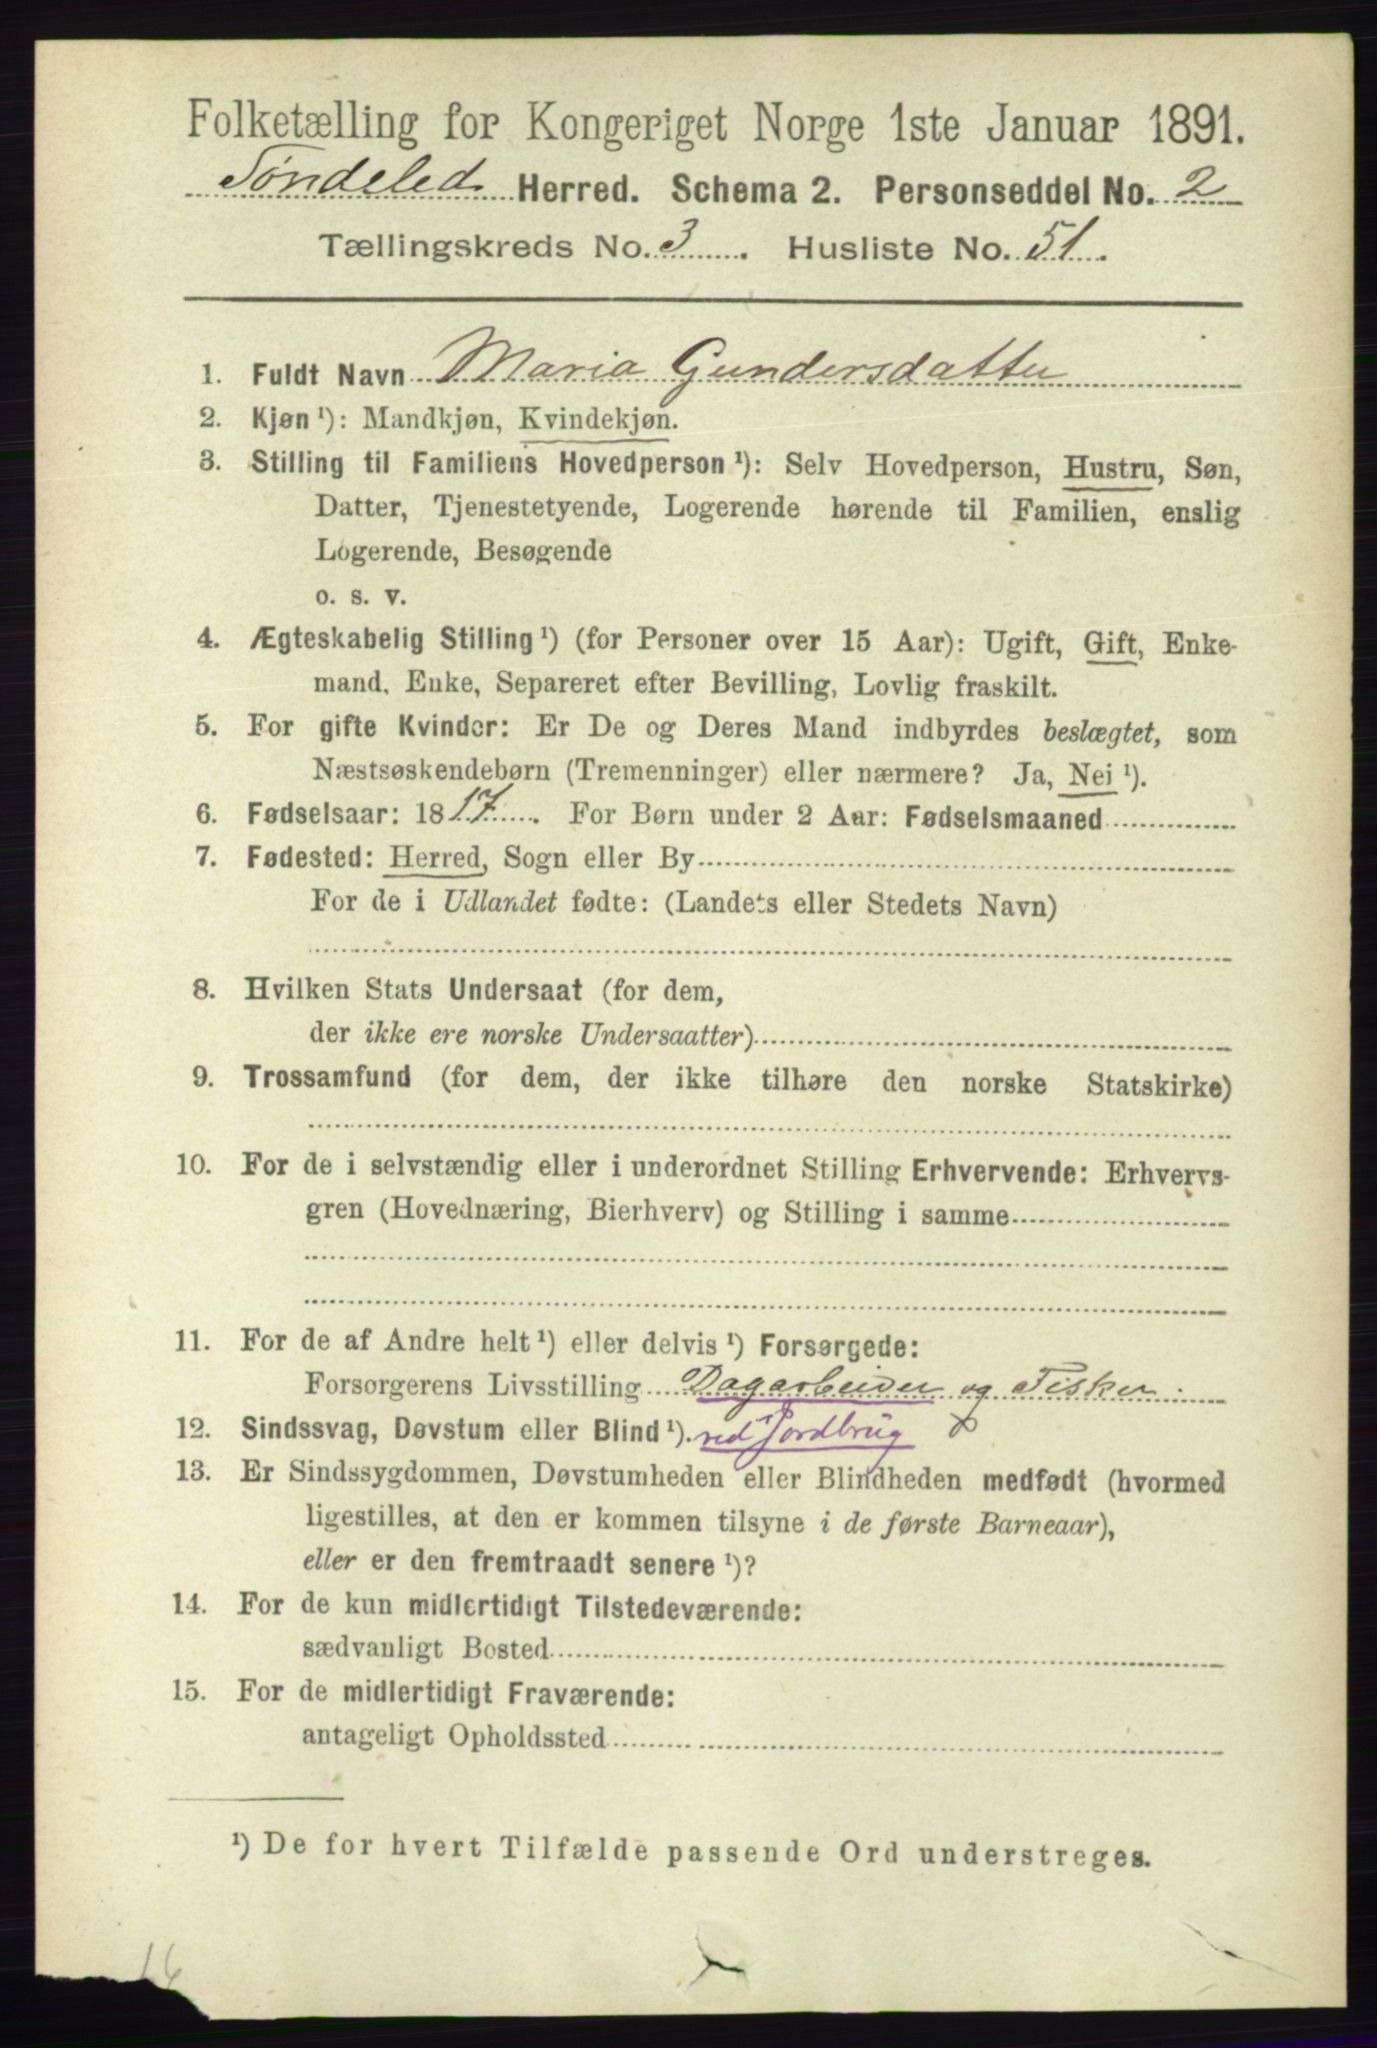 Folketælling for Kongeriget Norge 1ste Januar 1891.
Søndeled Herred. Schema 2. Personseddel No. 2
Tællingskreds No. 3. Husliste No. 51.
1. Fuldt Navn Maria Gundersdatter
2. Kjøn ¹): Mandkjøn, Kvindekjøn.
3. Stilling til Familiens Hovedperson ¹): Selv Hovedperson, Hustru, Søn,
Datter, Tjenestetyende, Logerende hørende til Familien, enslig
Logerende, Besøgende
o. s. v.
4. Ægteskabelig Stilling ¹) (for Personer over 15 Aar): Ugift, Gift, Enke-
mand, Enke, Separeret efter Bevilling, Lovlig fraskilt.
5. For gifte Kvinder: Er De og Deres Mand indbyrdes beslægtet, som
Næstsøskendebørn (Tremenninger) eller nærmere? Ja, Nei ¹).
6. Fødselsaar: 1817. For Børn under 2 Aar: Fødselsmaaned
7. Fødested: Herred, Sogn eller By
For de i Udlandet fødte: (Landets eller Stedets Navn)
8. Hvilken Stats Undersaat (for dem,
der ikke ere norske Undersaatter)
9. Trossamfund (for dem, der ikke tilhøre den norske Statskirke)
10. For de i selvstændig eller i underordnet Stilling Erhvervende: Erhvervs-
gren (Hovednæring, Bierhverv) og Stilling i samme
11. For de af Andre helt ¹) eller delvis ¹) Forsørgede:
Forsorgerens Livsstilling Dagarbeider og Fisker.
12. Sindssvag, Døvstum eller Blind ¹). ved Jordbrug
13. Er Sindssygdommen, Døvstumheden eller Blindheden medfødt (hvormed
ligestilles, at den er kommen tilsyne i de første Barneaar),
eller er den fremtraadt senere ¹)?
14. For de kun midlertidigt Tilstedeværende:
sædvanligt Bosted
15. For de midlertidigt Fraværende:
antageligt Opholdssted
¹) De for hvert Tilfælde passende Ord understreges.
16